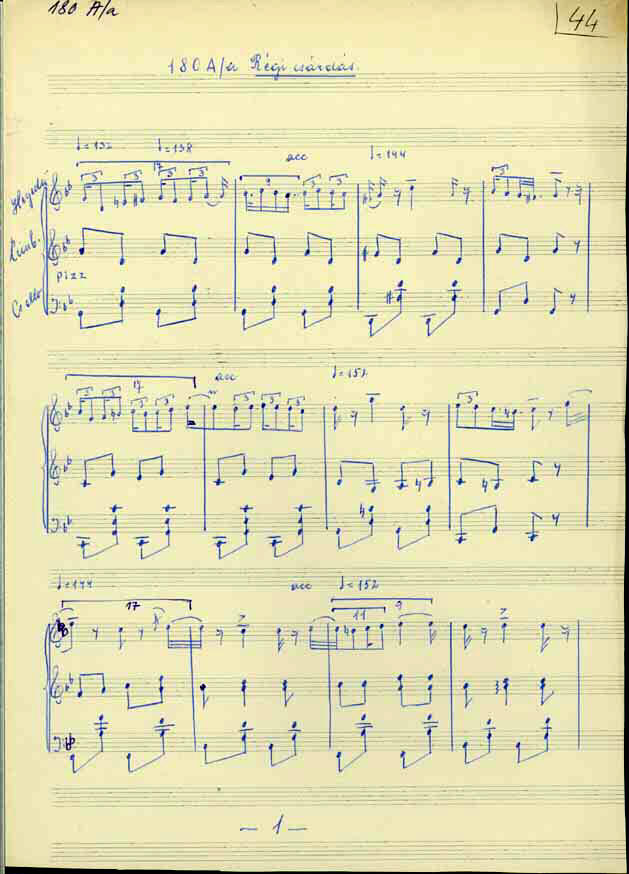 180 A/a
44
180 A/a Régi csárdás.
♩=132 ♩=138 acc ♩=144
17
3 3 3 3 9 3 3 3
Hegedű
Cimb.
pizz
Cello
17 acc ♩=151
3 3 3 3 3 3 3
♩=144 acc ♩=152
17 11 9
– 1 –